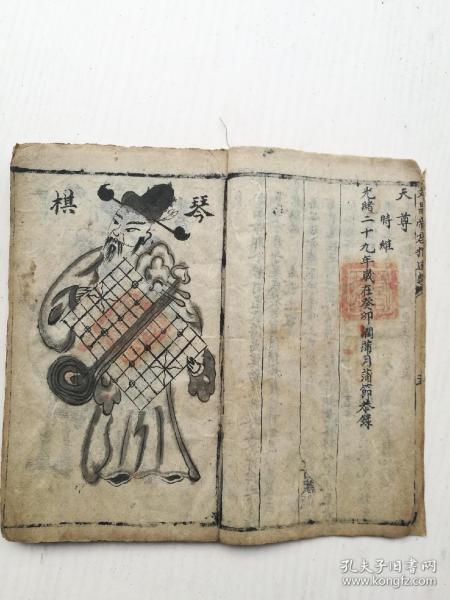 天尊
時維
光緒二十九年歲在癸卯閏蒲月蒲節恭錄
琴
棋
孔夫子旧书网
www.kongfz.com